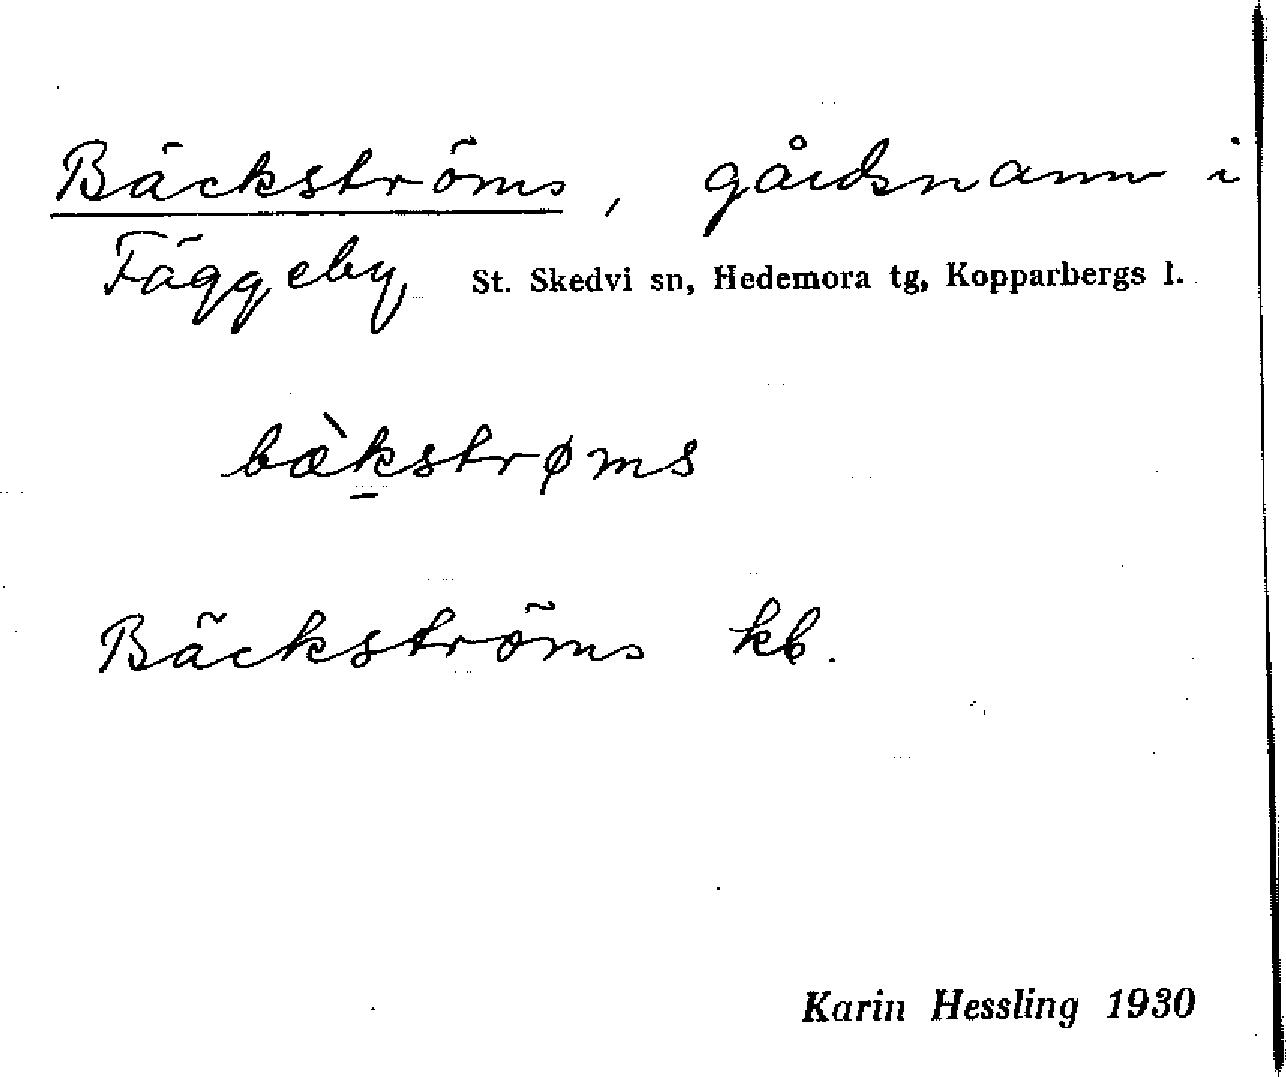 Bäckströms, gårdsnamn i
Fäggeby, St. Skedvi sn, Hedemora tg, Kopparbergs l.
bæ̀k̠strøms
Bäckströms kb.
Karin Hessling 1930